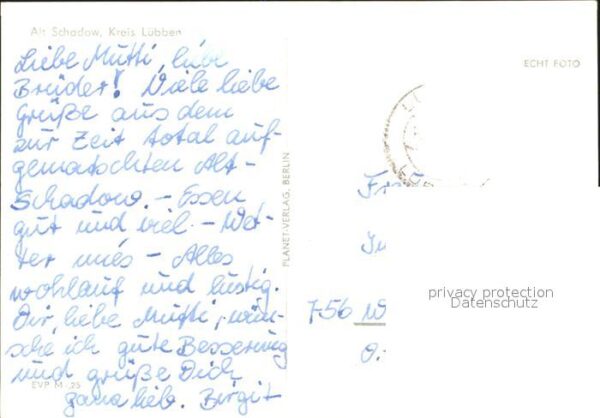 Alt Schadow, Kreis Lübben
Liebe Mutti, liebe
Brüder! Viele liebe
Grüße aus dem
zur Zeit total auf-
gematschten Alt-
Schadow. - Essen
gut und viel - Wet-
ter mies - Alles
wohlauf und lustig.
Dir, liebe Mutti, wün-
sche ich gute Besserung
und grüße Dich
ganz lieb. Birgit
EVP M -,25
PLANET-VERLAG, BERLIN
ECHT FOTO
756
privacy protection
Datenschutz